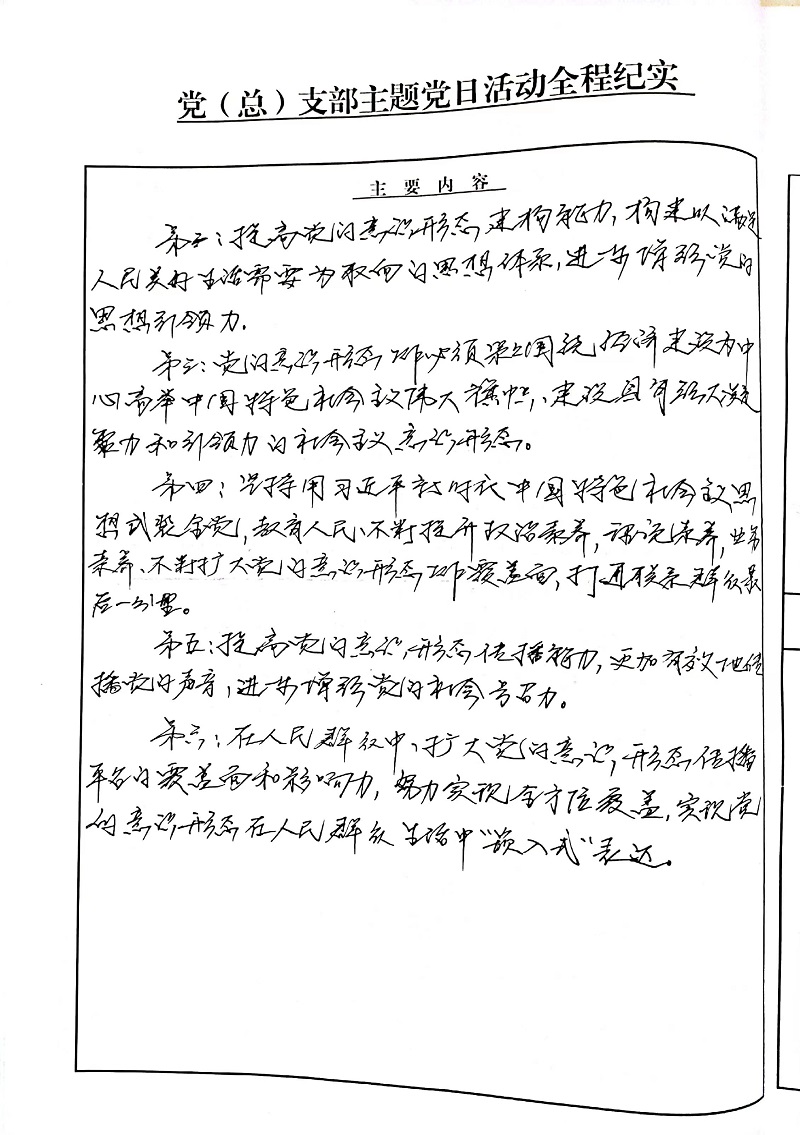 党（总）支部主题党日活动全程纪实
主 要 内 容
第二：提高党的意识形态建构能力，构建以满足
人民美好生活需要为取向的思想体系，进一步增强党的
思想引领力。
第三：党的意识形态工作必须紧紧围绕经济建设为中
心高举中国特色社会主义伟大旗帜、建设具有强大凝
聚力和引领力的社会主义意识形态。
第四：坚持用习近平新时代中国特色社会主义思
想武装全党，教育人民，不断提升政治素养，理论素养，业务
素养、不断扩大党的意识形态工作覆盖面，打通联系群众最
后一公里。
第五：提高党的意识形态传播能力，更加有效地传
播党的声音，进一步增强党的社会号召力。
第六：在人民群众中，扩大党的意识形态传播
平台的覆盖面和影响力，努力实现全方位覆盖，实现党
的意识形态在人民群众生活中“嵌入式”表达。